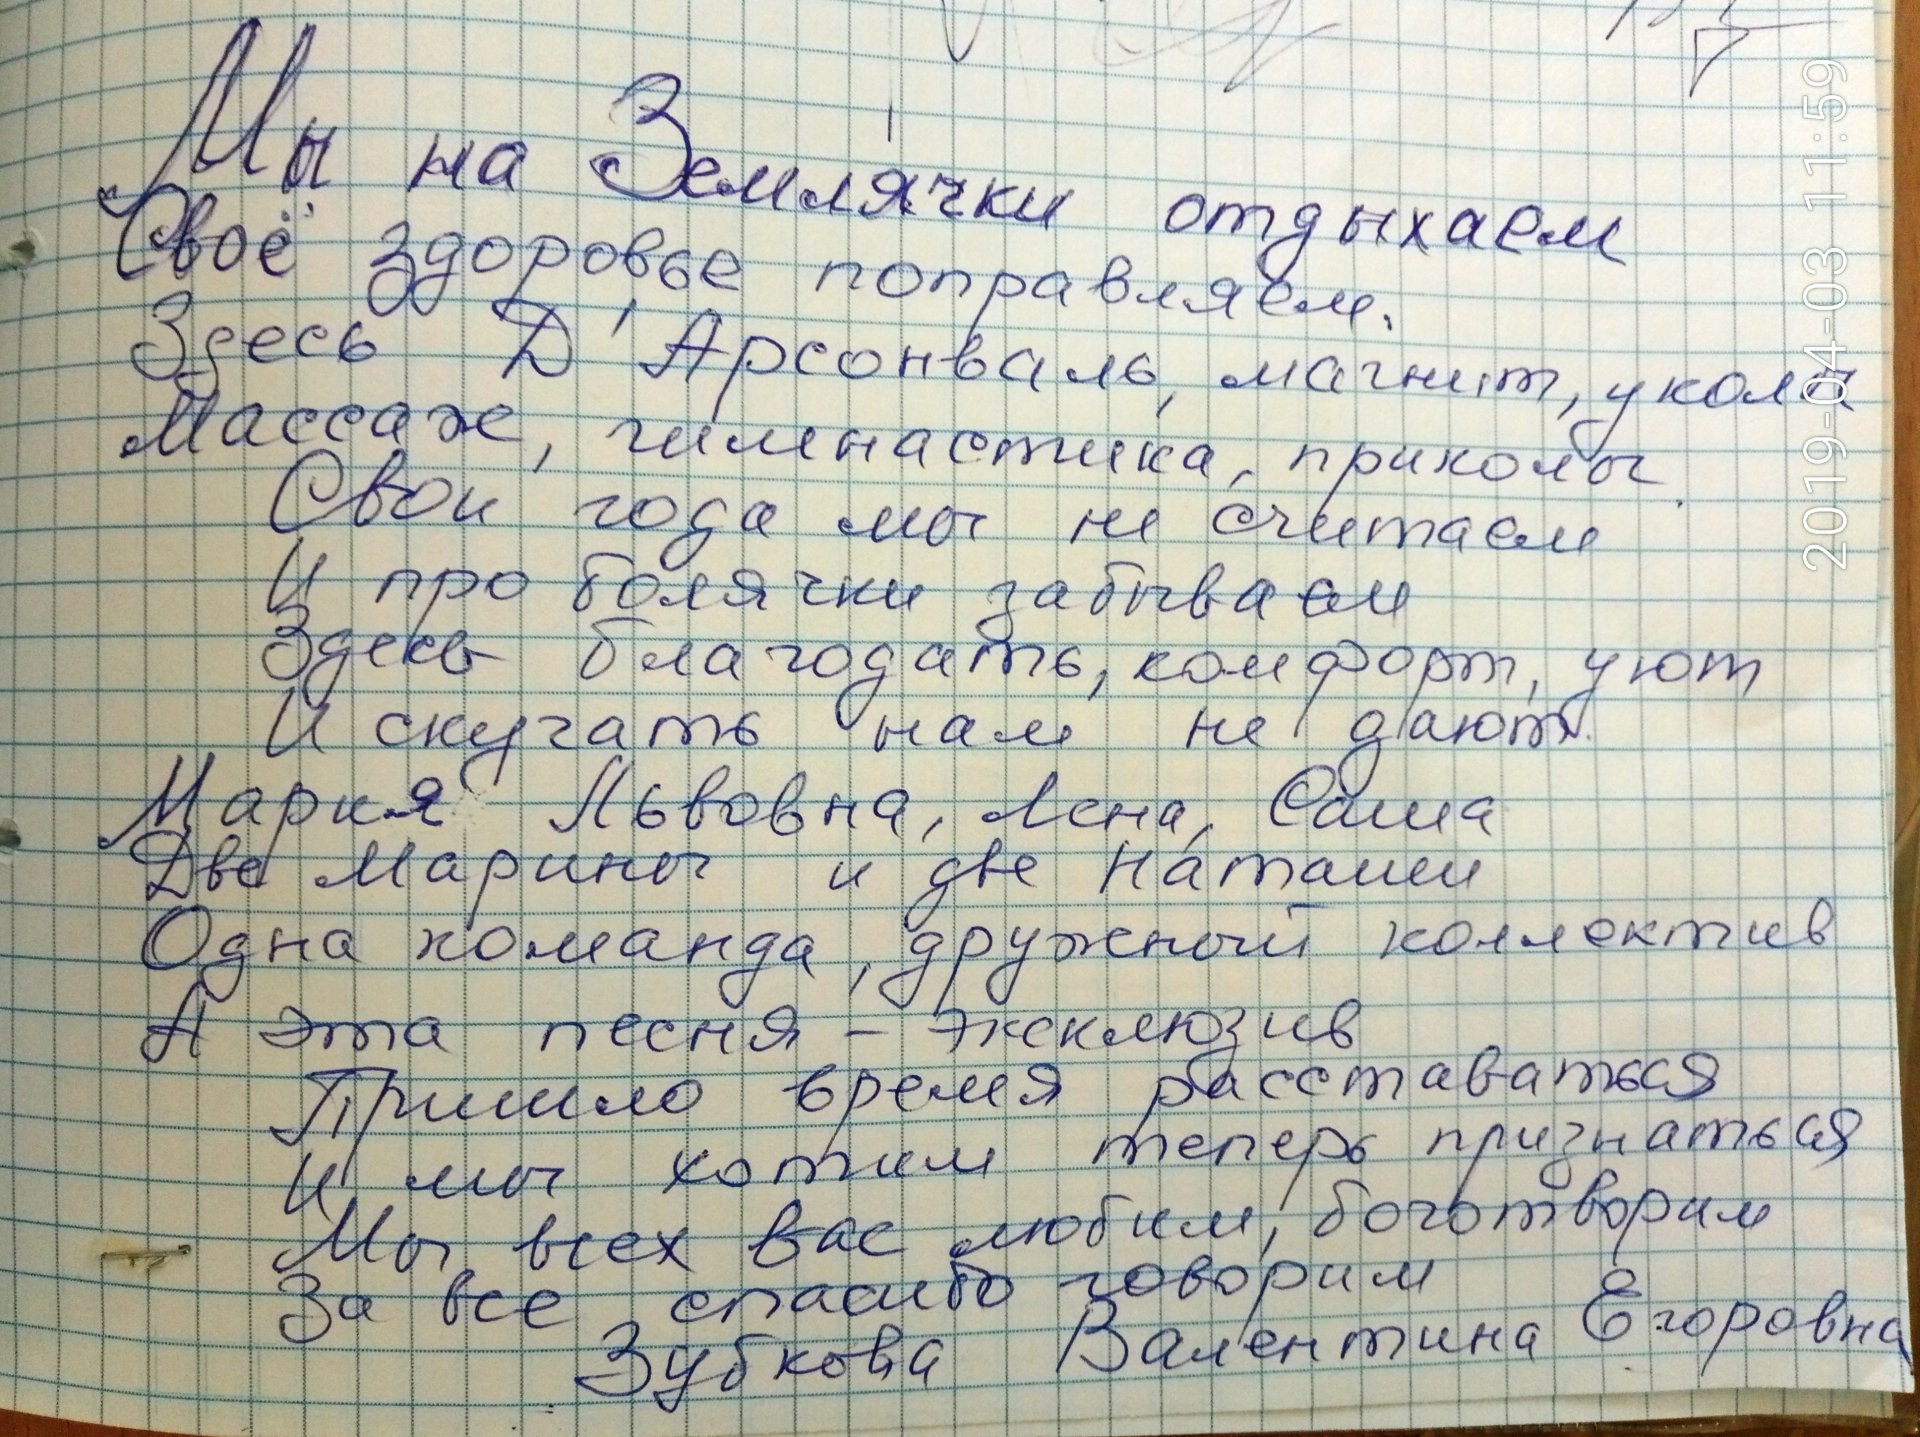 Мы на Землячки отдыхаем
Своё здоровье поправляем.
Здесь Д'Арсонваль, магнит, уколы
Массаж, гимнастика, приколы.
Свои года мы не считаем
И про болячки забываем
Здесь благодать, комфорт, уют
И скучать нам не дают.
Мария Львовна, Лена, Саша
Две Марины и две Наташи
Одна команда, дружный коллектив
А эта песня - эксклюзив
Пришло время расставаться
И мы хотим теперь признаться
Мы всех вас любим, боготворим
За все спасибо говорим
Зубкова Валентина Егоровна
2019-04-03 11:59